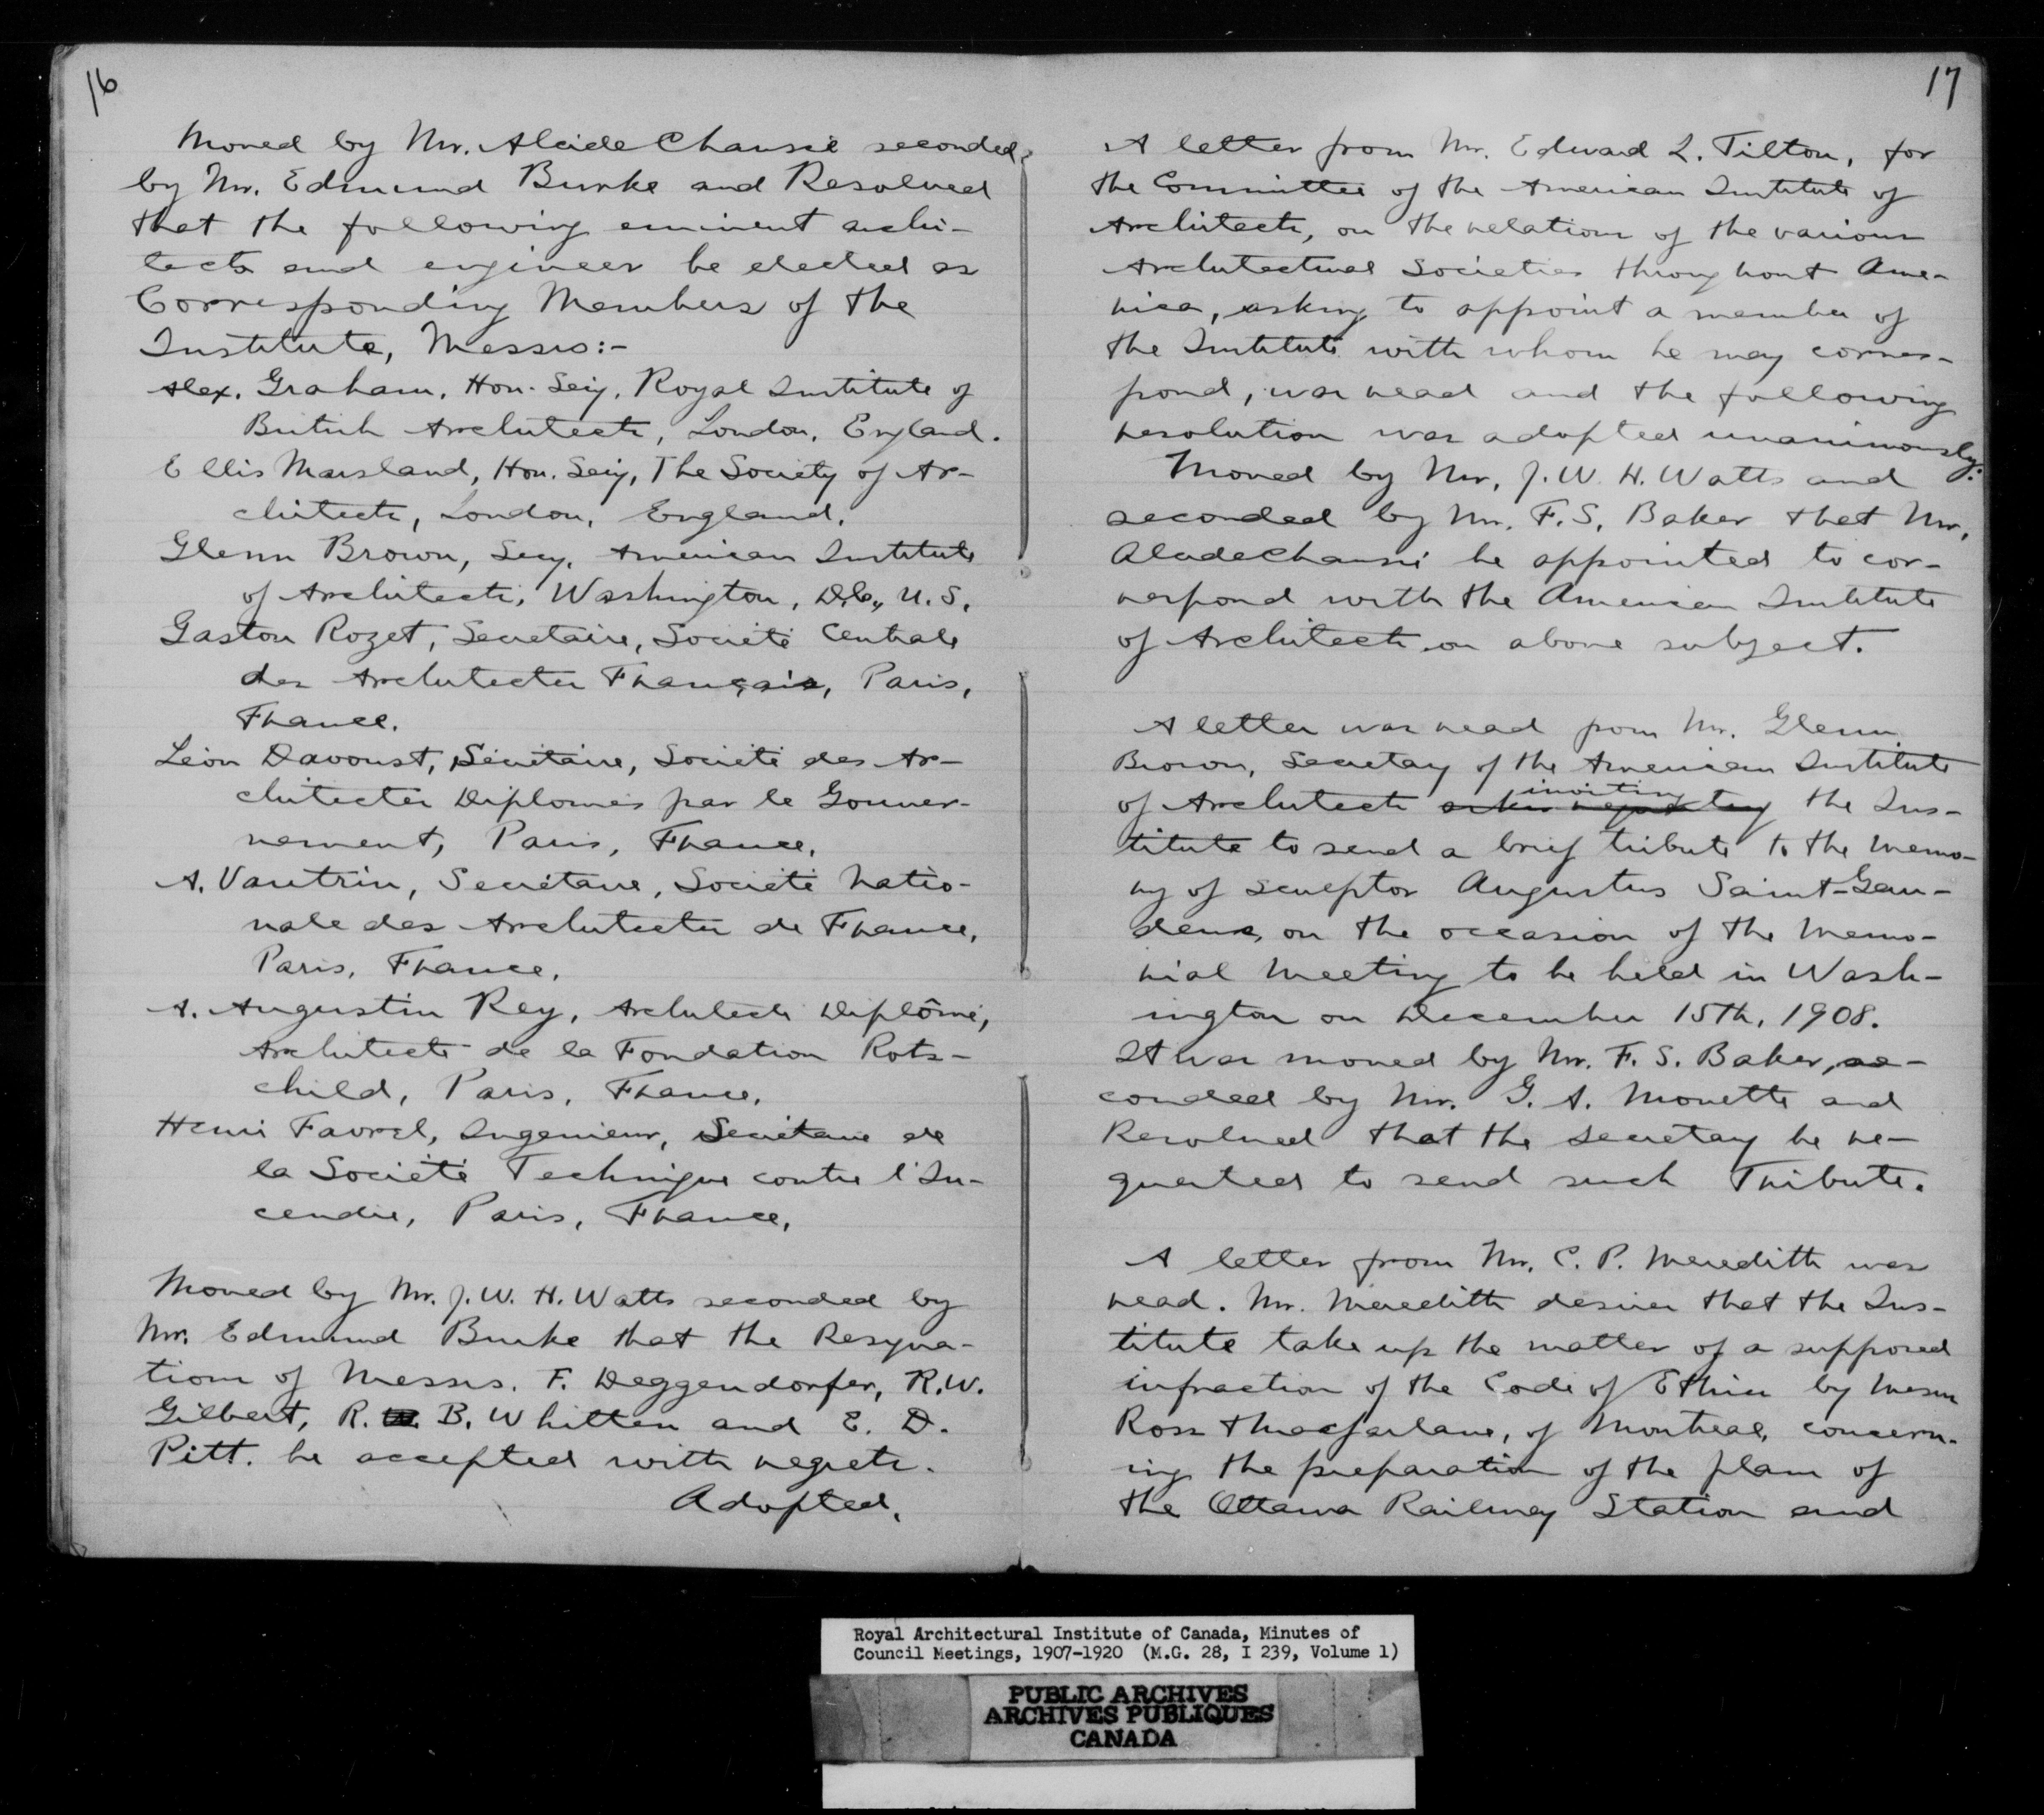 16
Moved by Mr. Alcide Chaussé seconded
by Mr. Edmund Burke and Resolved
that the following eminent archi-
tects and engineer be elected as
Corresponding Members of the
Institute, Messrs:-
Alex. Graham, Hon. Secy, Royal Institute of
British Architects, London, England.
Ellis Marsland, Hon. Secy, The Society of Ar-
chitects, London, England.
Glenn Brown, Secy, American Institute
of Architects, Washington, D.C., U.S.
Gaston Rozet, Secrétaire, Société Centrale
des Architectes Français, Paris,
France.
Léon Davoust, Sécrétaire, Société des Ar-
chitectes Diplomés par le Gouver-
nement, Paris, France.
A. Vautrin, Secrétaire, Société Natio-
nale des Architectes de France,
Paris, France.
A. Augustin Rey, Architecte Diplômé,
Architecte de la Fondation Rots-
child, Paris, France.
Henri Favrel, Ingenieur, Secrétaire de
la Société Technique contre l'In-
cendie, Paris, France.
Moved by Mr. J. W. H. Watts seconded by
Mr. Edmund Burke that the Resigna-
tions of Messrs. F. Deggendorfer, R. W.
Gilbert, R. B. Whitten and E. D.
Pitt. be accepted with regrets.
Adopted.
17
A letter from Mr. Edward L. Tilton, for
the Committee of the American Institute of
Architects, on the relations of the various
Architectural Societies throughout Ame-
rica, asking to appoint a member of
the Institute with whom he may corres-
pond, was read and the following
resolution was adopted unanimously:
Moved by Mr. J. W. H. Watts and
seconded by Mr. F. S. Baker that Mr.
Alcide Chaussé be appointed to cor-
respond with the American Institute
of Architects on above subject.
A letter was read from Mr. Glenn
Brown, Secretary of the American Institute
of Architects inviting the Ins-
titute to send a brief tribute to the memo-
ry of sculptor Augustus Saint-Gau-
dens, on the occasion of the Memo-
rial Meeting to be held in Wash-
ington on December 15th, 1908.
It was moved by Mr. F. S. Baker, se-
conded by Mr. G. A. Monette and
Resolved that the Secretary be re-
quested to send such Tribute.
A letter from Mr. C. P. Meredith was
read. Mr. Meredith desires that the Ins-
titute take up the matter of a supposed
infraction of the Code of Ethics by Messrs
Ross & Macfarlane, of Montreal, concern-
ing the preparation of the plans of
the Ottawa Railway Station and
Royal Architectural Institute of Canada, Minutes of
Council Meetings, 1907-1920 (M.G. 28, I 239, Volume 1)
PUBLIC ARCHIVES
ARCHIVES PUBLIQUES
CANADA